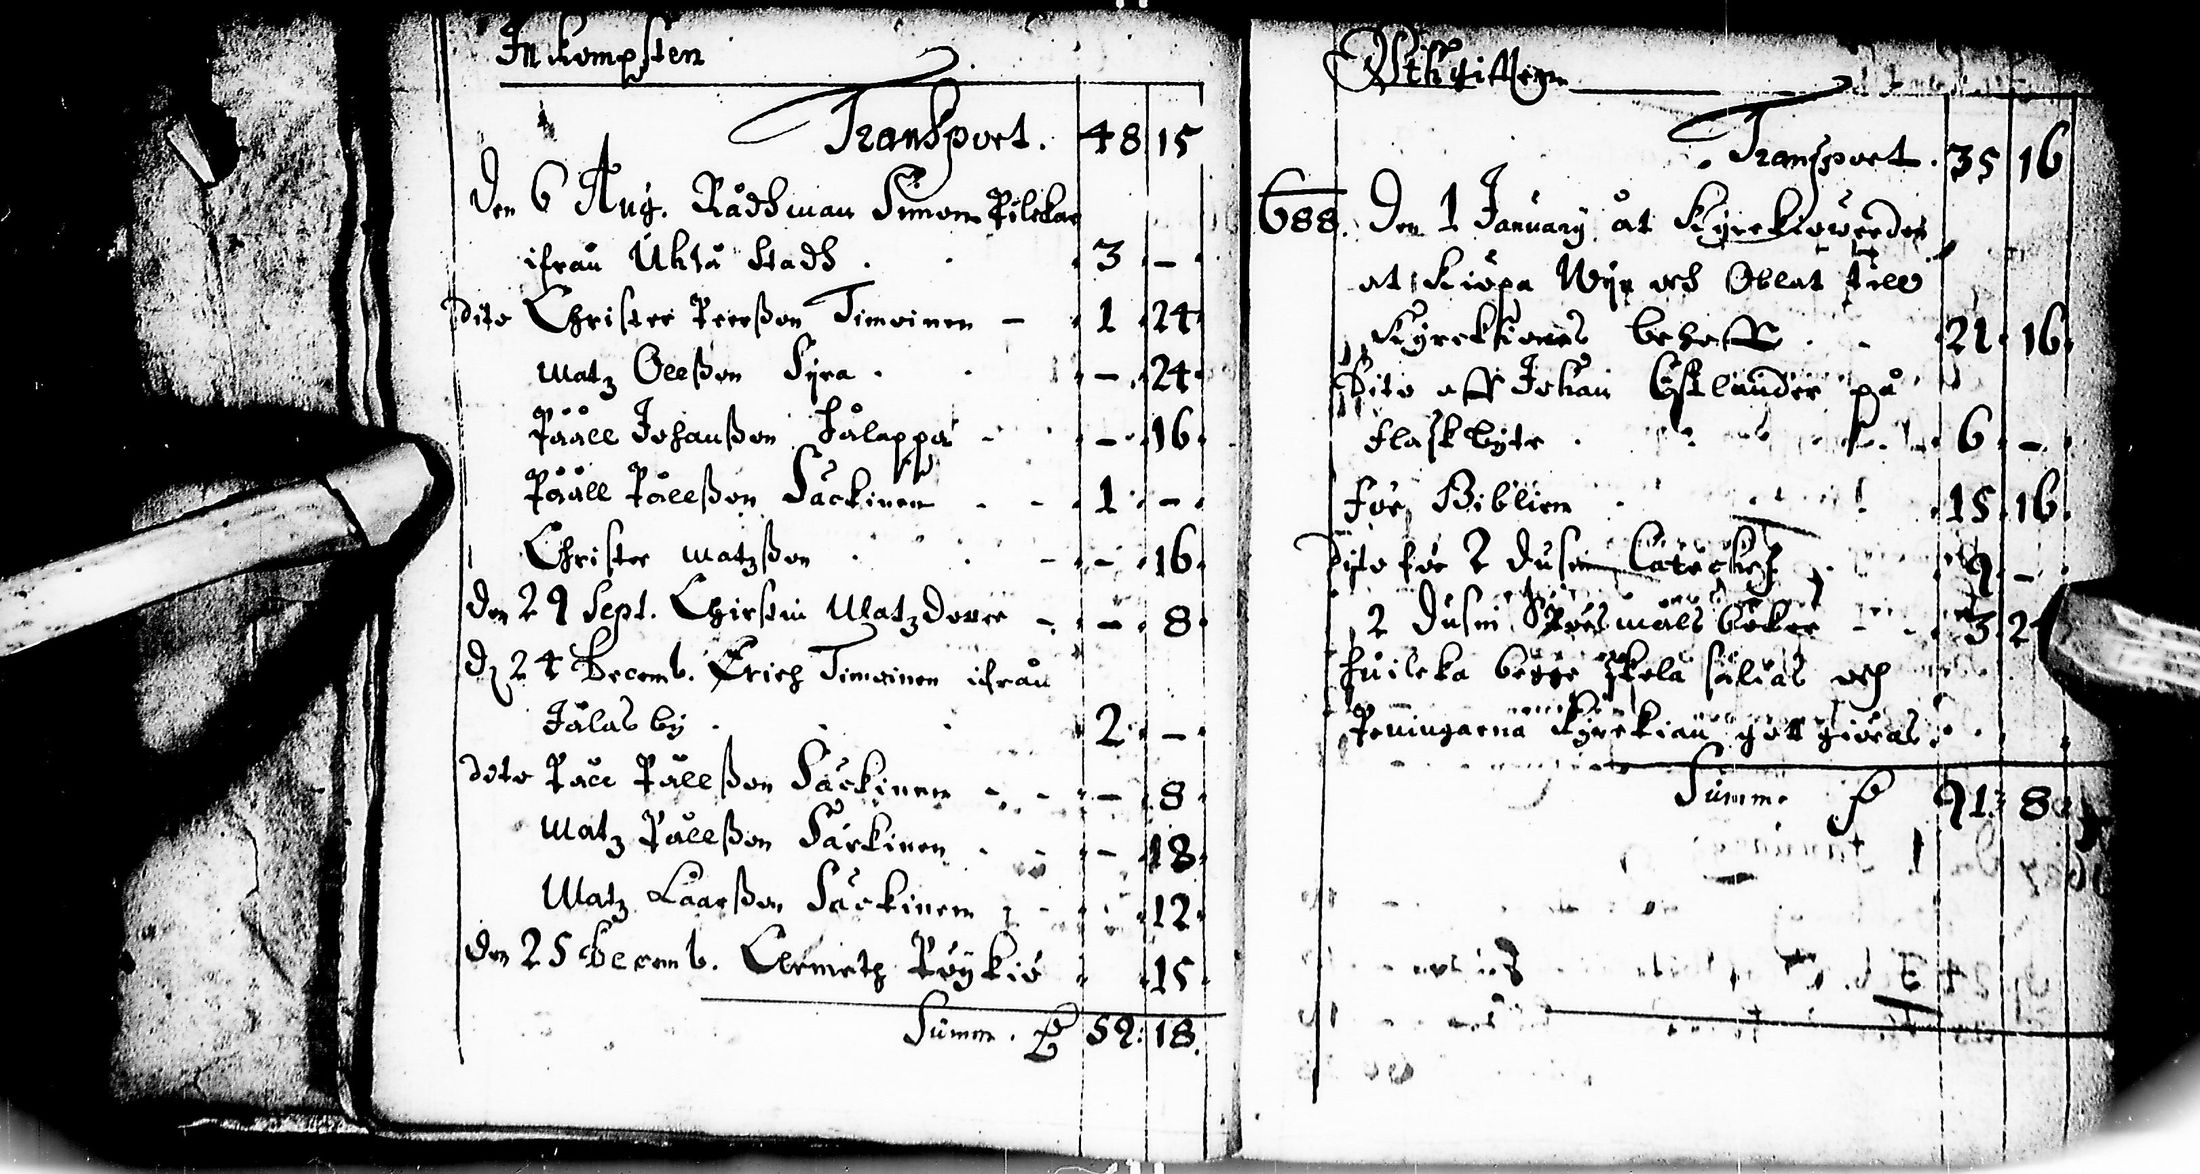 Inkompsten
Transport. 48 15
Den 6 Aug. Rådhman Simon Pilckar
ifrån Uhlå stadh . 3 –
Dito Christer Peerßon Timoinen – 1 24
Matz Oleßon Syra . – 24
Påäll Johanßon – 16
Påäll Pålleßon Säckinen 1 –
Christer Matzßon – 16
Den 29 Sept. Chirstin Matz Dotter – – 8
D. 24 Decemb. Erich Timoinen ifrån
Jålas by . 2 –
dito Påll Pålleßon Säckinen – 8
Matz Pålleßon Särkinen – 18
Matz Låarßon Säckinen 12
Den 25 Decemb. Clemetz Röykiö 15
Summ. 59: 18.
Uthgifften
Transport. 35 16
688. Den 1 January åt Kyrckiowerden
at kiöpa Wijn och Oblat till
Kyrckiones behoff 21 16
Dito aff Johan på
flaskbyte . 6 –
för Biblien 15 16
Dito för 2 dusin Cateches 9 –
2 dusin Spörsmåls böker 3 2
huilcka begge skola säljas och
Peningarna Kyrckian gott giöras
Summ. 91: 8